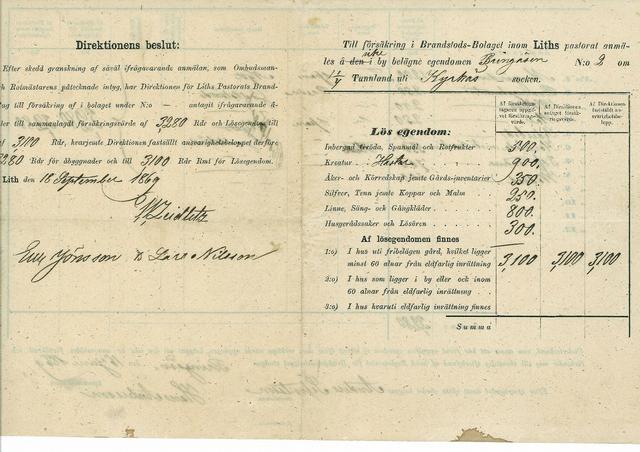 Direktionens beslut:
Efter skedd granskning af såväl ifrågavarande anmälan, som Ombudsman
Rotmästarens påtecknade intyg, har Direktionen för Liths Pastorats Brand-
tog till försäkring af i bolaget under N:o — antagit ifrågavarande
ler till sammanlagdt försäkringsvärde af 5280 Rdr och Lösegendom till
af 3100 Rdr, hvarjemte Direktionen fastställt ansvarighetsbeloppet derför
5280 Rdr för åbyggnader och till 3100 Rdr Rmt för Lösegendom.
Lith den 18 September 1869
W Zeidlitz
Jönsson Lars Nilsson
Till försäkring i Brandstods-Bolaget inom Liths pastorat anmä-
les å den i by belägne egendomen Bringåsen N:o 2 om
Tunnland uti Kyrkås socken.
Af försäkrings-
tagaren uppgif-
vet försäkrings-
värde.
Af Direktionen
antaget försäk-
ringsvärde.
Af Direktionen
fastställt an-
svarighetsbe-
lopp.
Lös egendom:
Inbergad Gröda, Spanmål och Rotfrukter 500.
Kreatur Hästar 900.
Åker- och Körredskap jemte Gårds-inventarier 350
Silfver, Tenn jemte Koppar och Malm 250.
Linne, Säng- och Gångkläder 800.
Husgerådssaker och Lösören 300.
Af lösegendomen finnes
1:o) I hus uti fribelägen gård, hvilket ligger
minst 60 alnar från eldfarlig inrättning 3,100 3,100 3,100
2:o) I hus som ligger i by eller ock inom
60 alnar från eldfarlig inrättning
3:o) I hus hvaruti eldfarlig inrättning finnes
Summa